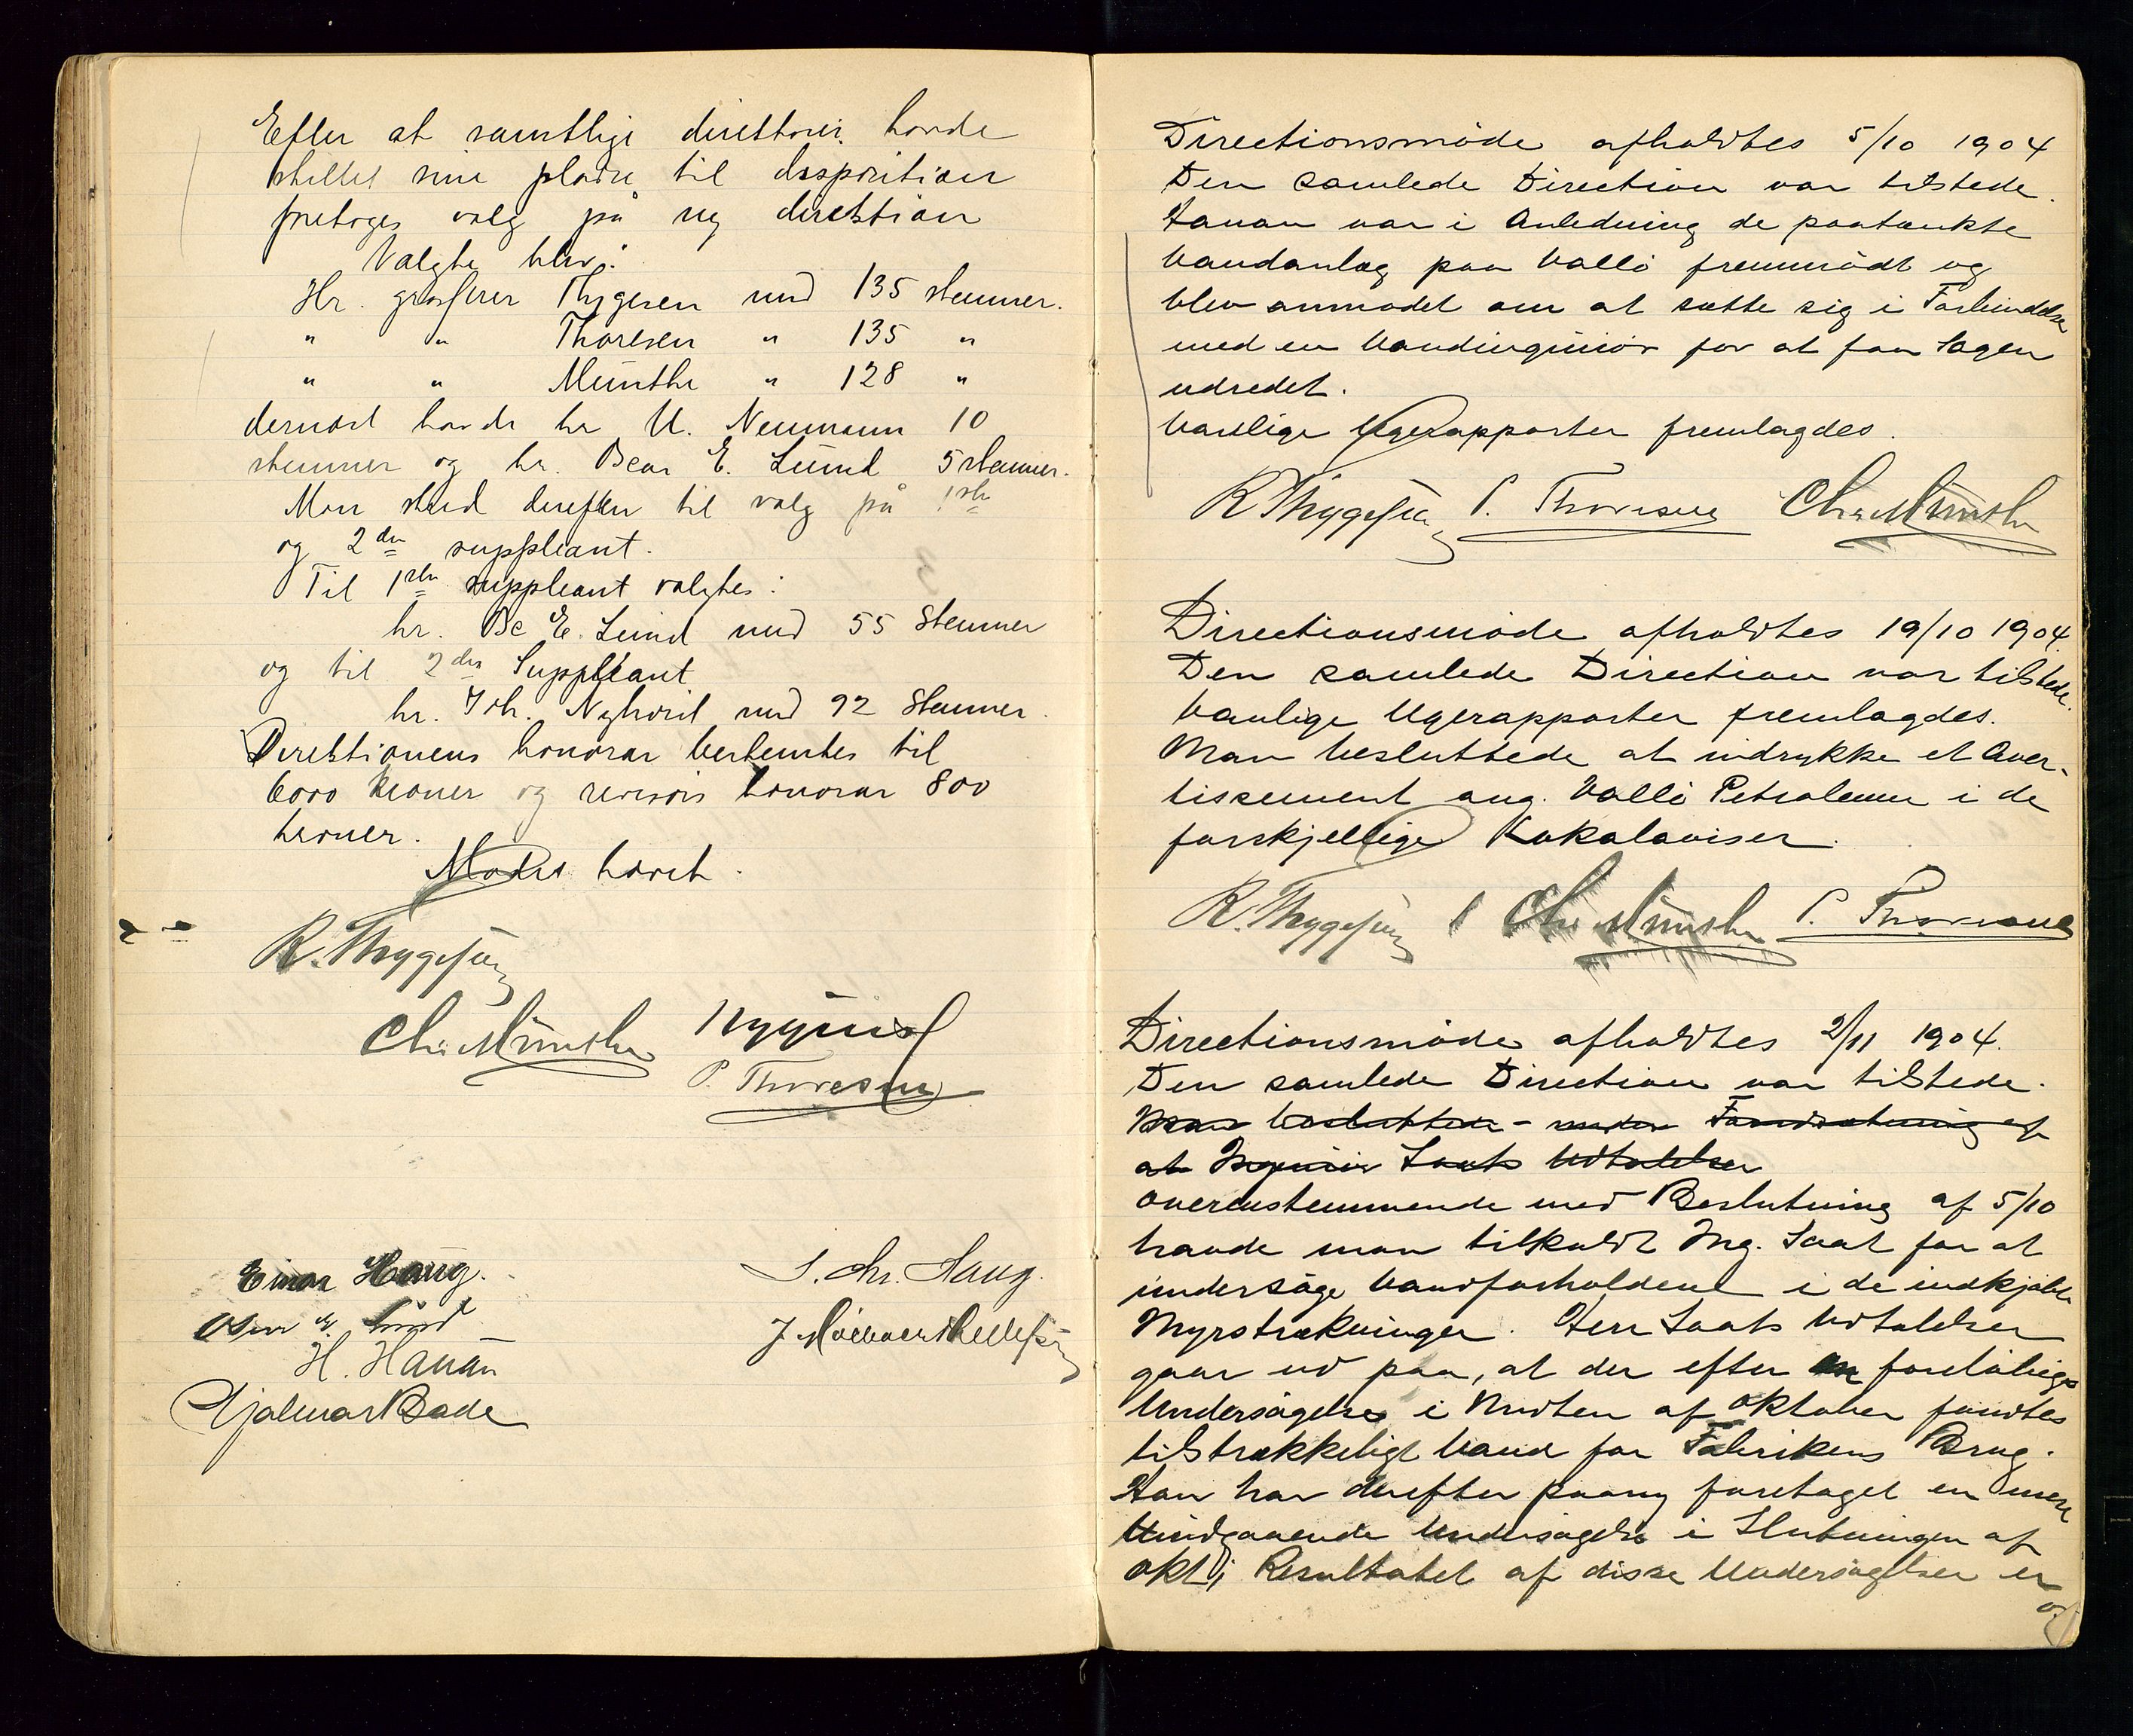 Efter at samtlige direktører havde
stillet sine pladse til disposition
foretoges valg på ny direktion
Valgte blev:
Hr. grosserer Thygesen med 135 stemmer.
" " Thoresen " 135 "
" " Münthe " 128 "
dernæst havde hr U. Neumann 10
stemmer og hr. Oscar E. Lund 5 stemmer.
Man skred derefter til valg på 1ste
og 2den suppleant.
Til 1ste suppleant valgtes:
hr. Osc E. Lund med 55 Stemmer
og til 2den Suppleant
hr. Joh. Nyqvist med 92 Stemmer.
Direktionens honorar bestemtes til
6000 kroner og revisors honorar 800
kroner.
Mødet hævet.
R. Thygesen
Chr. Münthe Nyqvist
P. Thoresen
Einar Haug. S. Chr. Haug.
Oscar E. Lund
H. Hanan
Hjalmar Bade
Directionsmöde afholdtes 5/10 1904
Den samlede Direction var tilstede.
Hanan var i Anledning de paatænkte
Vandanlæg paa Vallö fremmödt og
blev anmodet om at sætte sig i Forbindelse
med en Vandingeniör for at faa Sagen
udredet.
Vanlige Ugerapporter fremlagdes.
R Thygesen P. Thoresen Chr. Münthe
Directionsmöde afholdtes 19/10 1904.
Den samlede Direction var tilstede.
Vanlige Ugerapporter fremlagdes.
Man besluttede at indrykke et Aver-
tissement ang. Vallö Petroleum i de
forskjellige Lokalaviser.
R. Thygesen Chr. Münthe P. Thoresen
Directionsmöde afholdtes 2/11 1904.
Den samlede Direction var tilstede.
Man besluttede - under Forudsætning af
at Ingeniör Saats Udtalelser
Overenstemmende med Beslutning af 5/10
havde man tilkaldt Ing. Saat for at
undersöge Vandforholdene i de indkjöbte
Myrstrækninger. Herr Saats Udtalelser
gaar ud paa, at der efter en forelöbig
Undersögelse i Midten af Oktober fandtes
tilstrækkeligt Vand for Fabrikens Brug.
Han har derefter paany foretaget en mere
indgaaende Undersögelse i Slutningen af
Okt; Resultatet af disse Undersögelser er
og